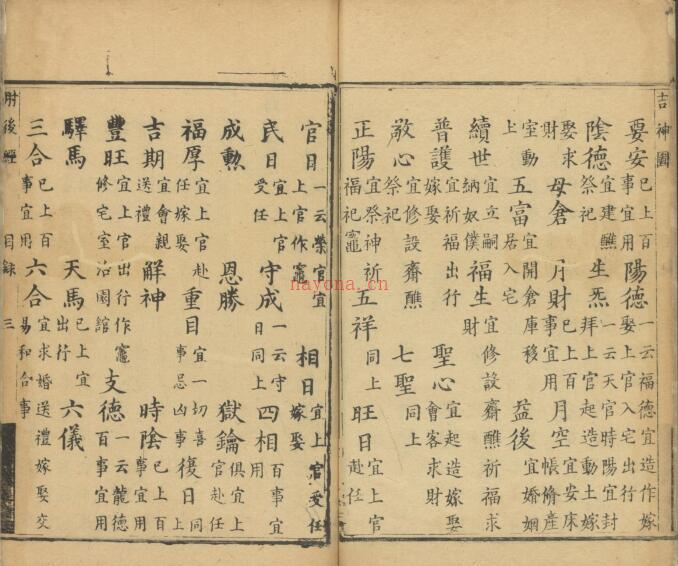 吉神圖
要安 已上百事宜用 陽德 一云福德宜造作嫁娶上官入宅出行
陰德 宜建醮祭祀 生炁 一云天官時陽宜封拜上官起造動土嫁
娶求財 母倉 月財 已上百事宜用 月空 宜安床帳脩產
室動上 五富 宜開倉庫移居入宅 益後 宜婚姻
續世 宜立嗣納奴僕 福生 宜修設齋醮祈福求財
普護 宜祈福出行嫁娶 聖心 宜起造嫁娶會客求財
敬心 宜修設齋醮祭祀 七聖 同上
正陽 宜祭神祈福祀竈 五祥 同上 旺日 宜上官赴任
官日 一云榮官宜上官作竈 相日 宜上官受任嫁娶
民日 宜上官受任 守成 一云守日同上 四相 百事宜用
成勲 恩勝 獄鑰 俱宜上官赴任
福厚 宜上官赴任嫁娶 重日 宜一切喜事忌凶事 復日 同上
吉期 宜會親送禮 解神 時陰 已上百事宜用
豐旺 宜上官出行作竈修宅室治園館 支德 一云龍德百事宜用
驛馬 天馬 已上宜出行 六儀
三合 已上百事宜用 六合 宜求婚送禮嫁娶交易和合事
肘後經 目錄 三
nayona.cn